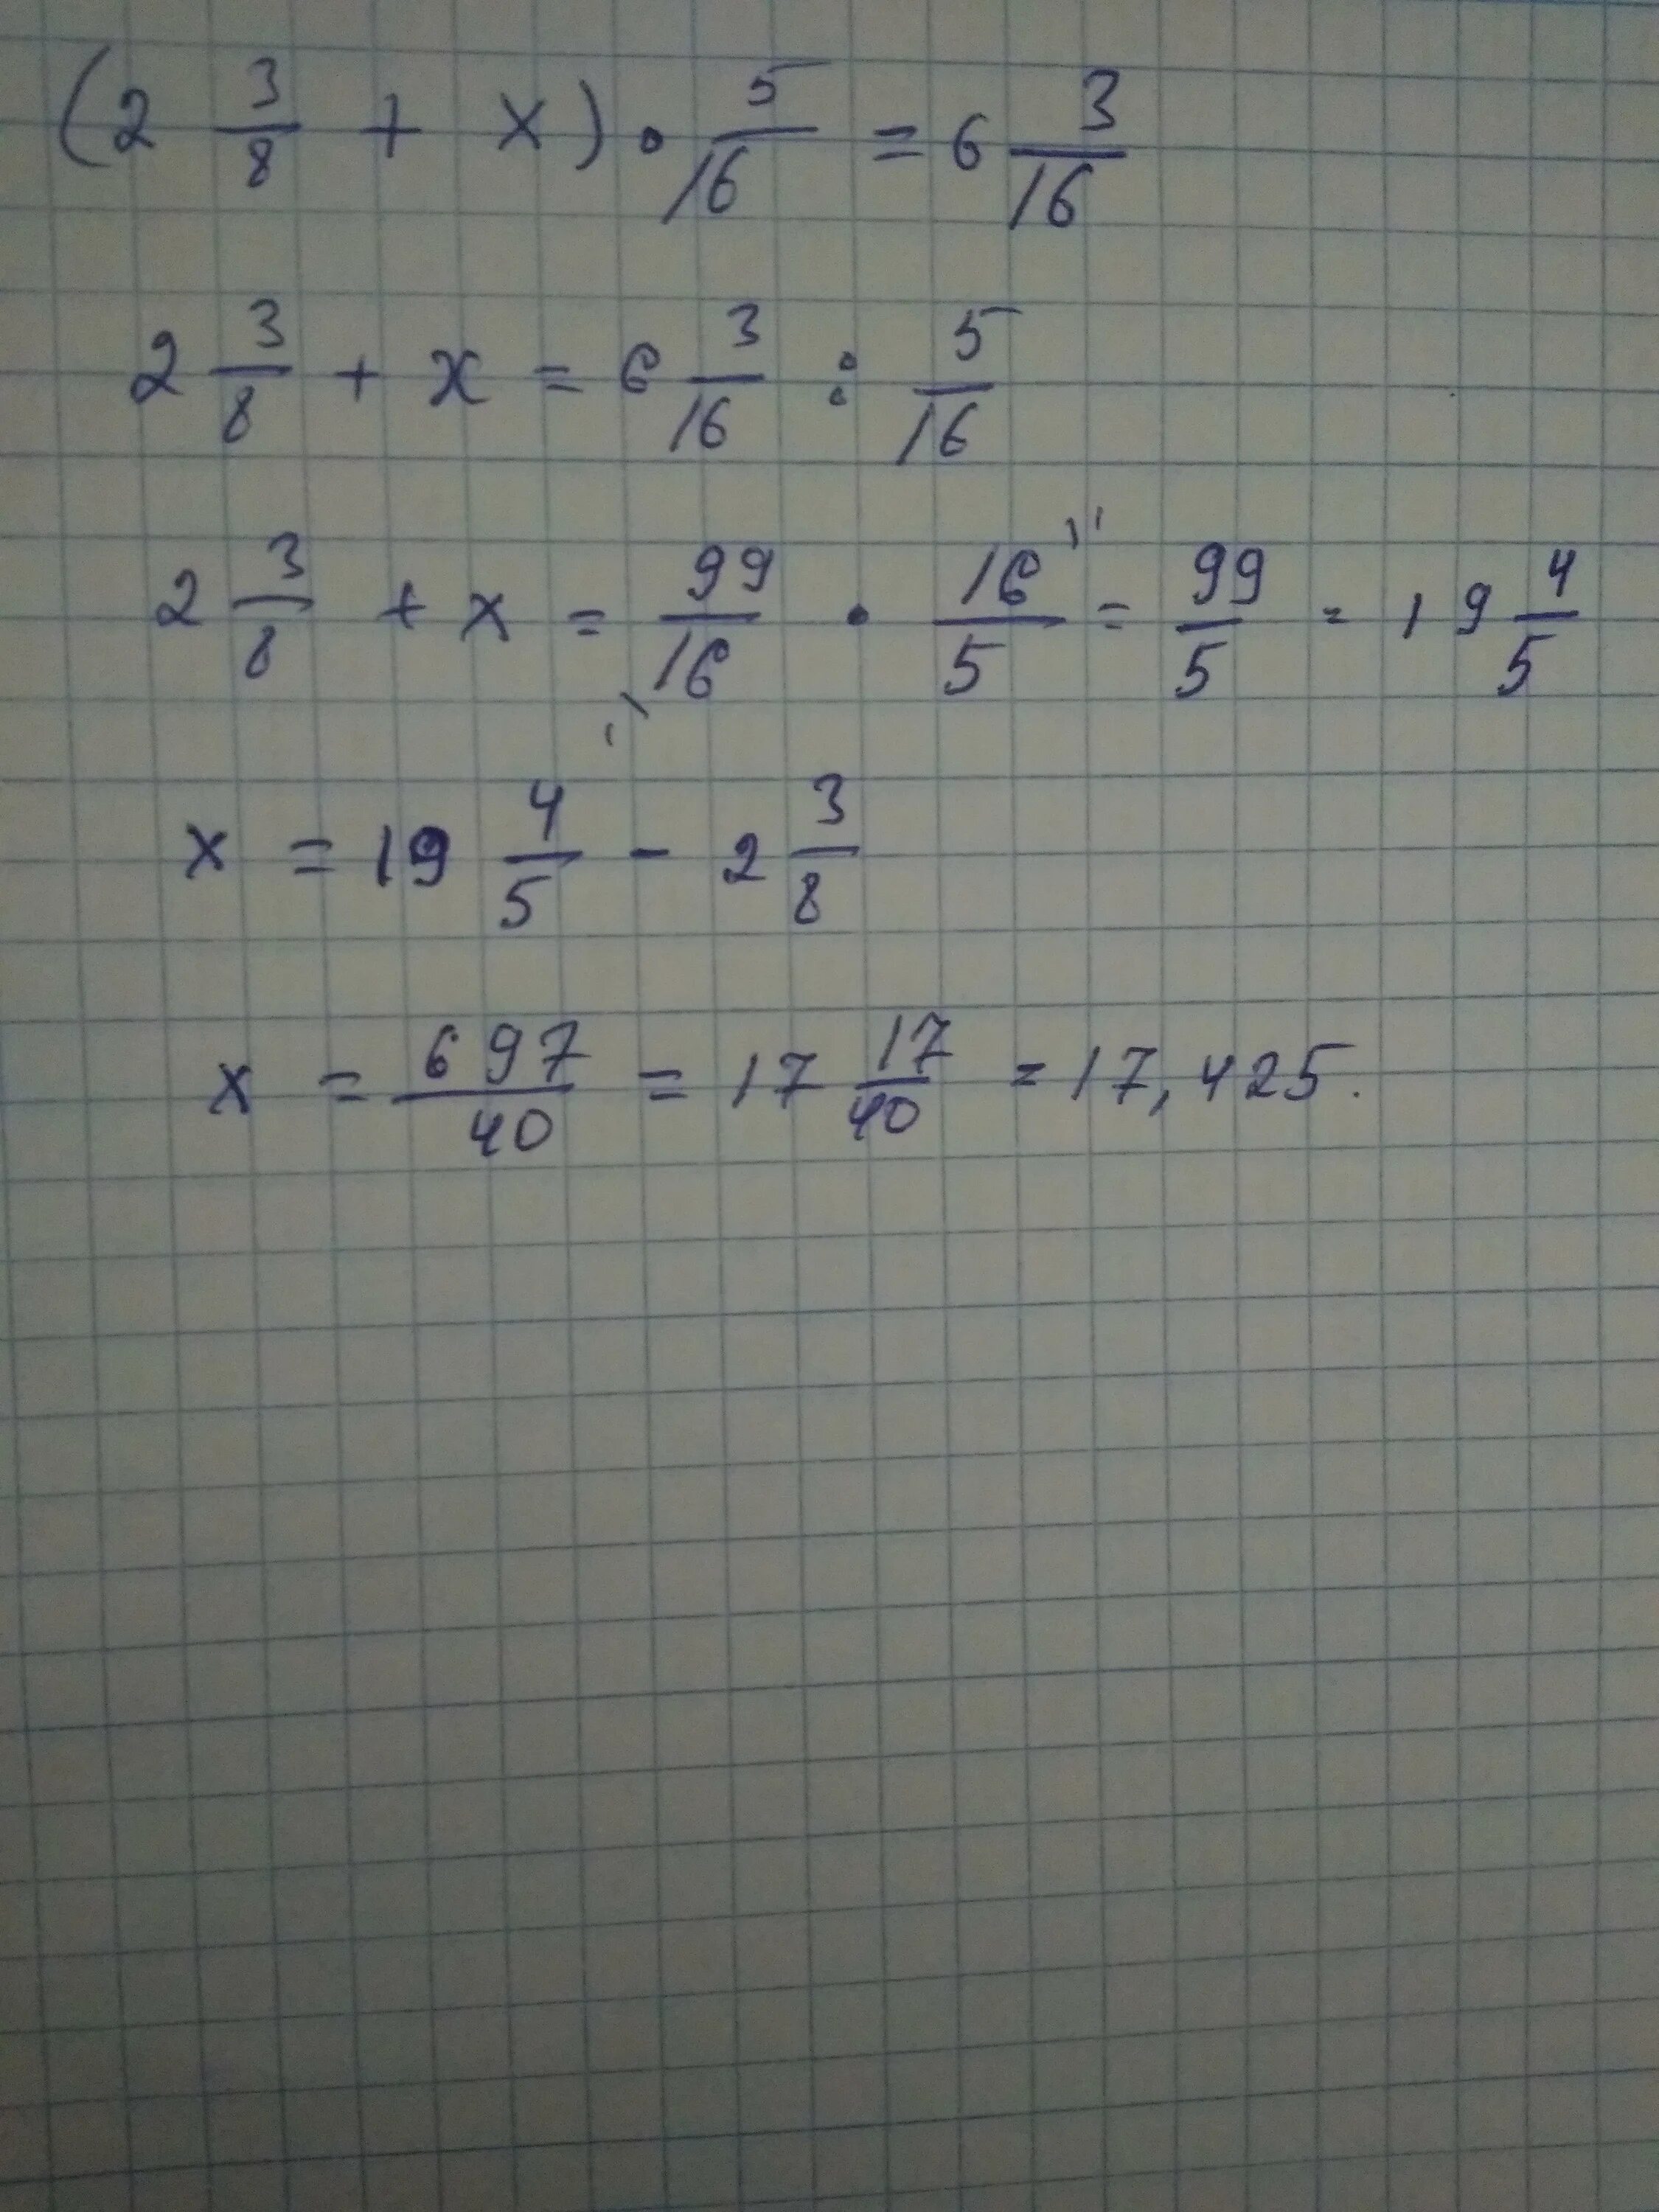 (2 3/8 + x) • 5/16 = 6 3/16
2 3/8 + x = 6 3/16 : 5/16
2 3/8 + x = 99/16 • 16/5 = 99/5 = 19 4/5
x = 19 4/5 - 2 3/8
x = 697/40 = 17 17/40 = 17,425.